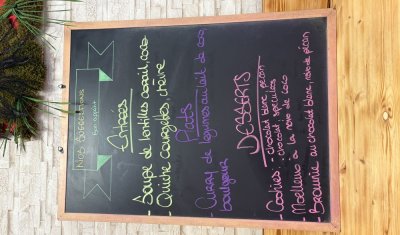 NOS SUGGESTIONS
Bon appétit
Entrées
- Soupe de lentilles corail, coco
- Quiche courgettes, chèvre
Plats
- Curry de légumes au lait de coco
boulgour
DESSERTS
- Cookies - chocolat blanc, pécan
- chocolat, spéculoos
- Moelleux à la noix de coco
- Brownie au chocolat blanc, noix de pécan